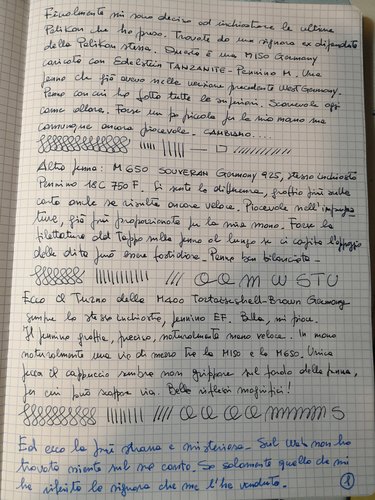 Finalmente mi sono deciso ad inchiostrare le ultime
Pelikan che ho preso. Trovate da una signora ex dipendente
della Pelikan stessa. Questa è una M150 Germany
caricata con Edelstein TANZANITE - Pennino M. Una
penna che già avevo nella versione precedente West Germany.
Penna con cui ho fatto tutte le superiori. Scorrevole oggi
come allora. Forse un po piccola per la mia mano ma
comunque ancora piacevole. CAMBIAMO....
Altra penna: M650 SOUVERAN Germany 925, stesso inchiostro
Pennino 18C 750 F. Si sente la differenza, graffia più sulla
carta anche se risulta ancora veloce. Piacevole nell'impugna
tura, già più proporzionata per la mia mano. Forse la
filettatura del tappo sulla penna al lungo se ci capita l'appoggio
delle dita può essere fastidiosa. Penna ben bilanciata.
W S T U
Ecco il Turno della M400 Tortoiseshell-Brown Germany
sempre lo stesso inchiostro, pennino EF. Bella, mi piace.
Il pennino graffia, preciso, naturalmente meno veloce. In mano
naturalmente una via di mezzo tra la M150 e la M650. Unica
pecca il cappuccio sembra non grippare sul fondo della penna,
per cui può scappar via. Bella riflessi magnifici!
Ed ecco la più strana e misteriosa. Sul web non ho
trovato niente sul suo conto. So solamente quello che mi
ha riferito la signora che me l'ha venduta.
1